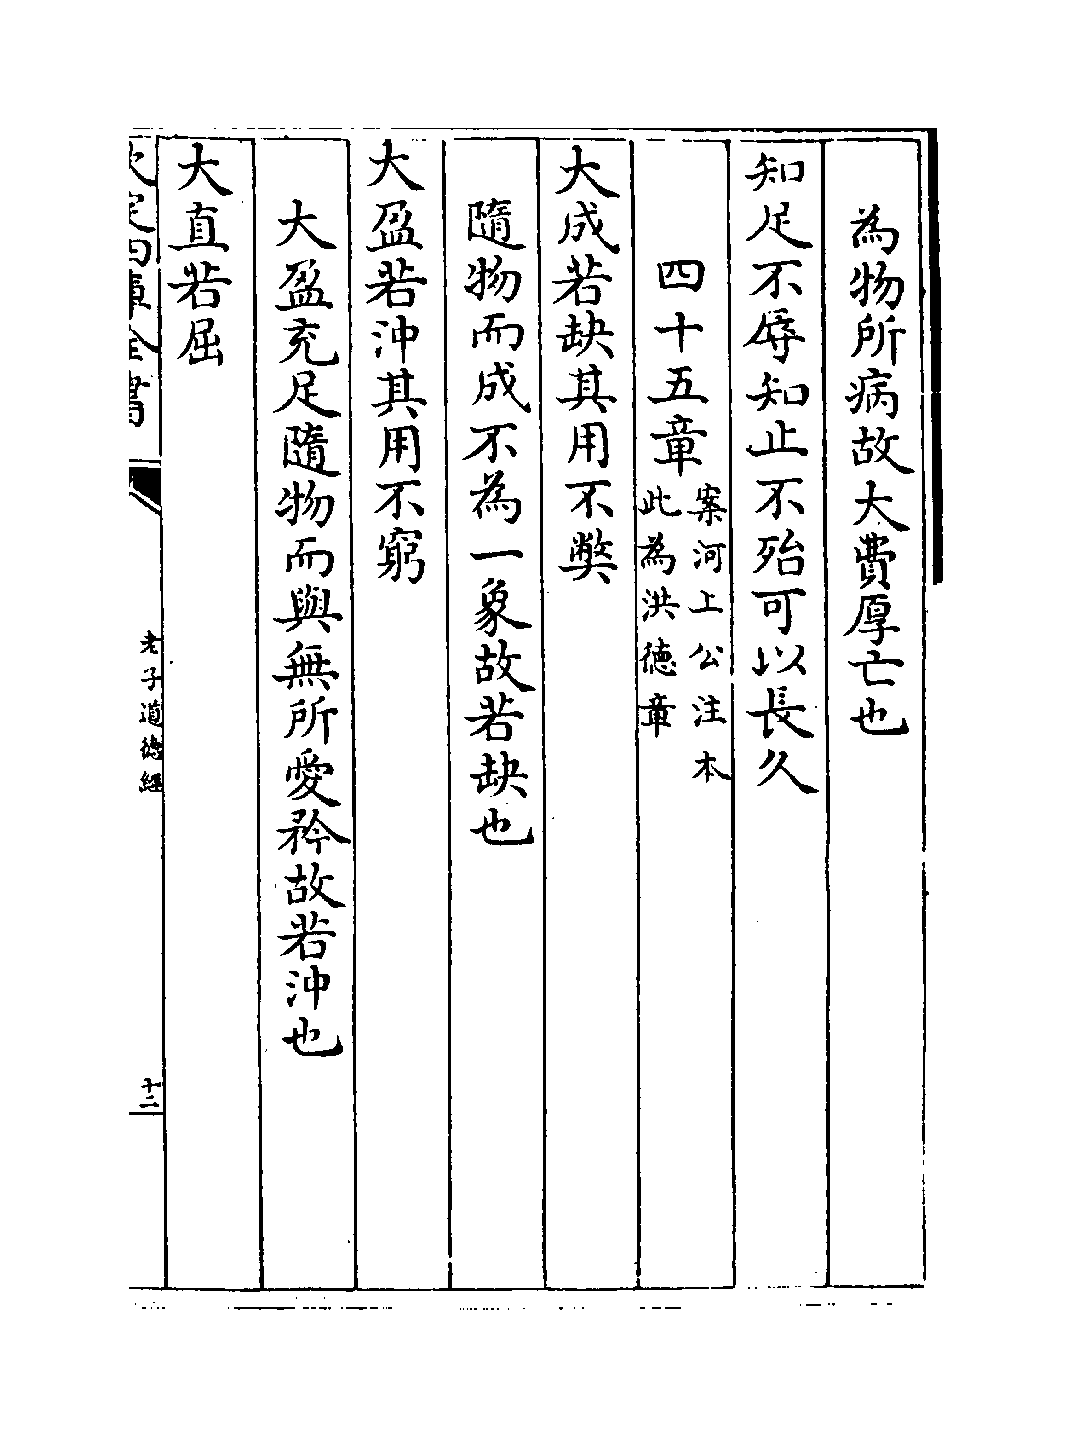 為物所病故大費厚亡也
知足不辱知止不殆可以長久
四十五章案河上公注本
此為洪德章
大成若缺其用不弊
隨物而成不為一象故若缺也
大盈若沖其用不窮
大盈充足隨物而與無所愛矜故若沖也
大直若屈
欽定四庫全書
老子道德經
十二